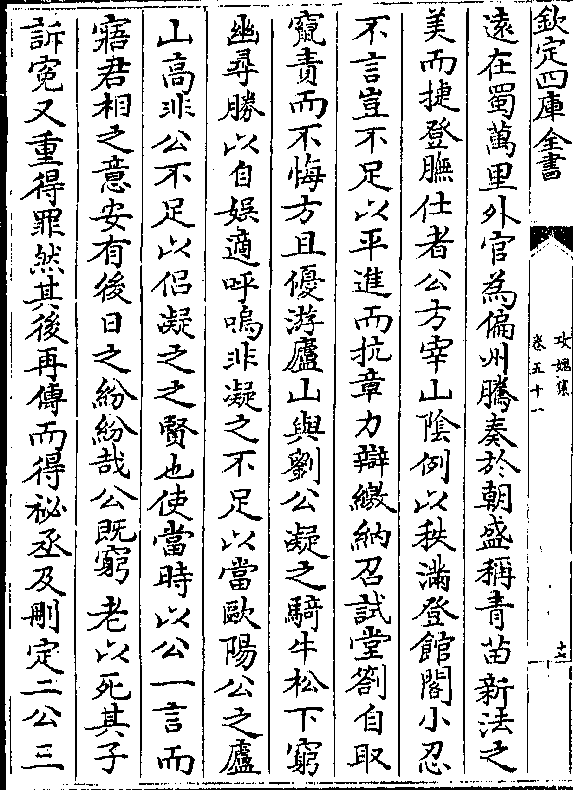 欽定四庫全書
攻媿集
卷五十一
十一
遠在蜀萬里外官為偏州騰奏於朝盛稱青苗新法之
美而捷登膴仕者公方宰山陰例以秩滿登館閣小忍
不言豈不足以平進而抗章力辯繳納召試堂劄自取
竄責而不悔方且優游廬山與劉公凝之騎牛松下窮
幽尋勝以自娛適呼嗚非凝之不足以當歐陽公之廬
山高非公不足以侣凝之之賢也使當時以公一言而
寤君相之意安有後日之紛紛哉公既窮老以死其子
訴寃又重得罪然其後再傳而得秘丞及刪定二公三